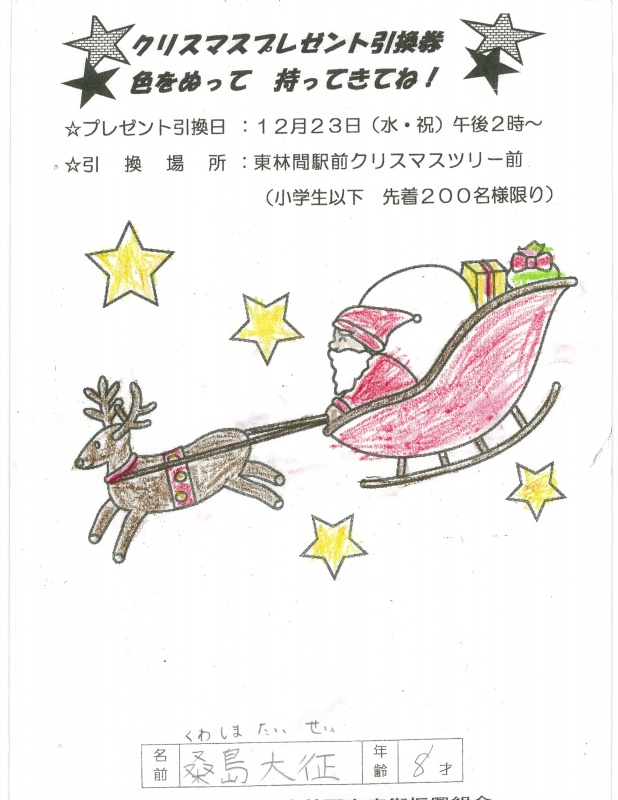 クリスマスプレゼント引換券
色をぬって　持ってきてね！
☆プレゼント引換日：１２月２３日（水・祝）午後２時～
☆引　換　場　所：東林間駅前クリスマスツリー前
（小学生以下　先着２００名様限り）
くわしま たいせい
名前 桑島大征 年齢 8才